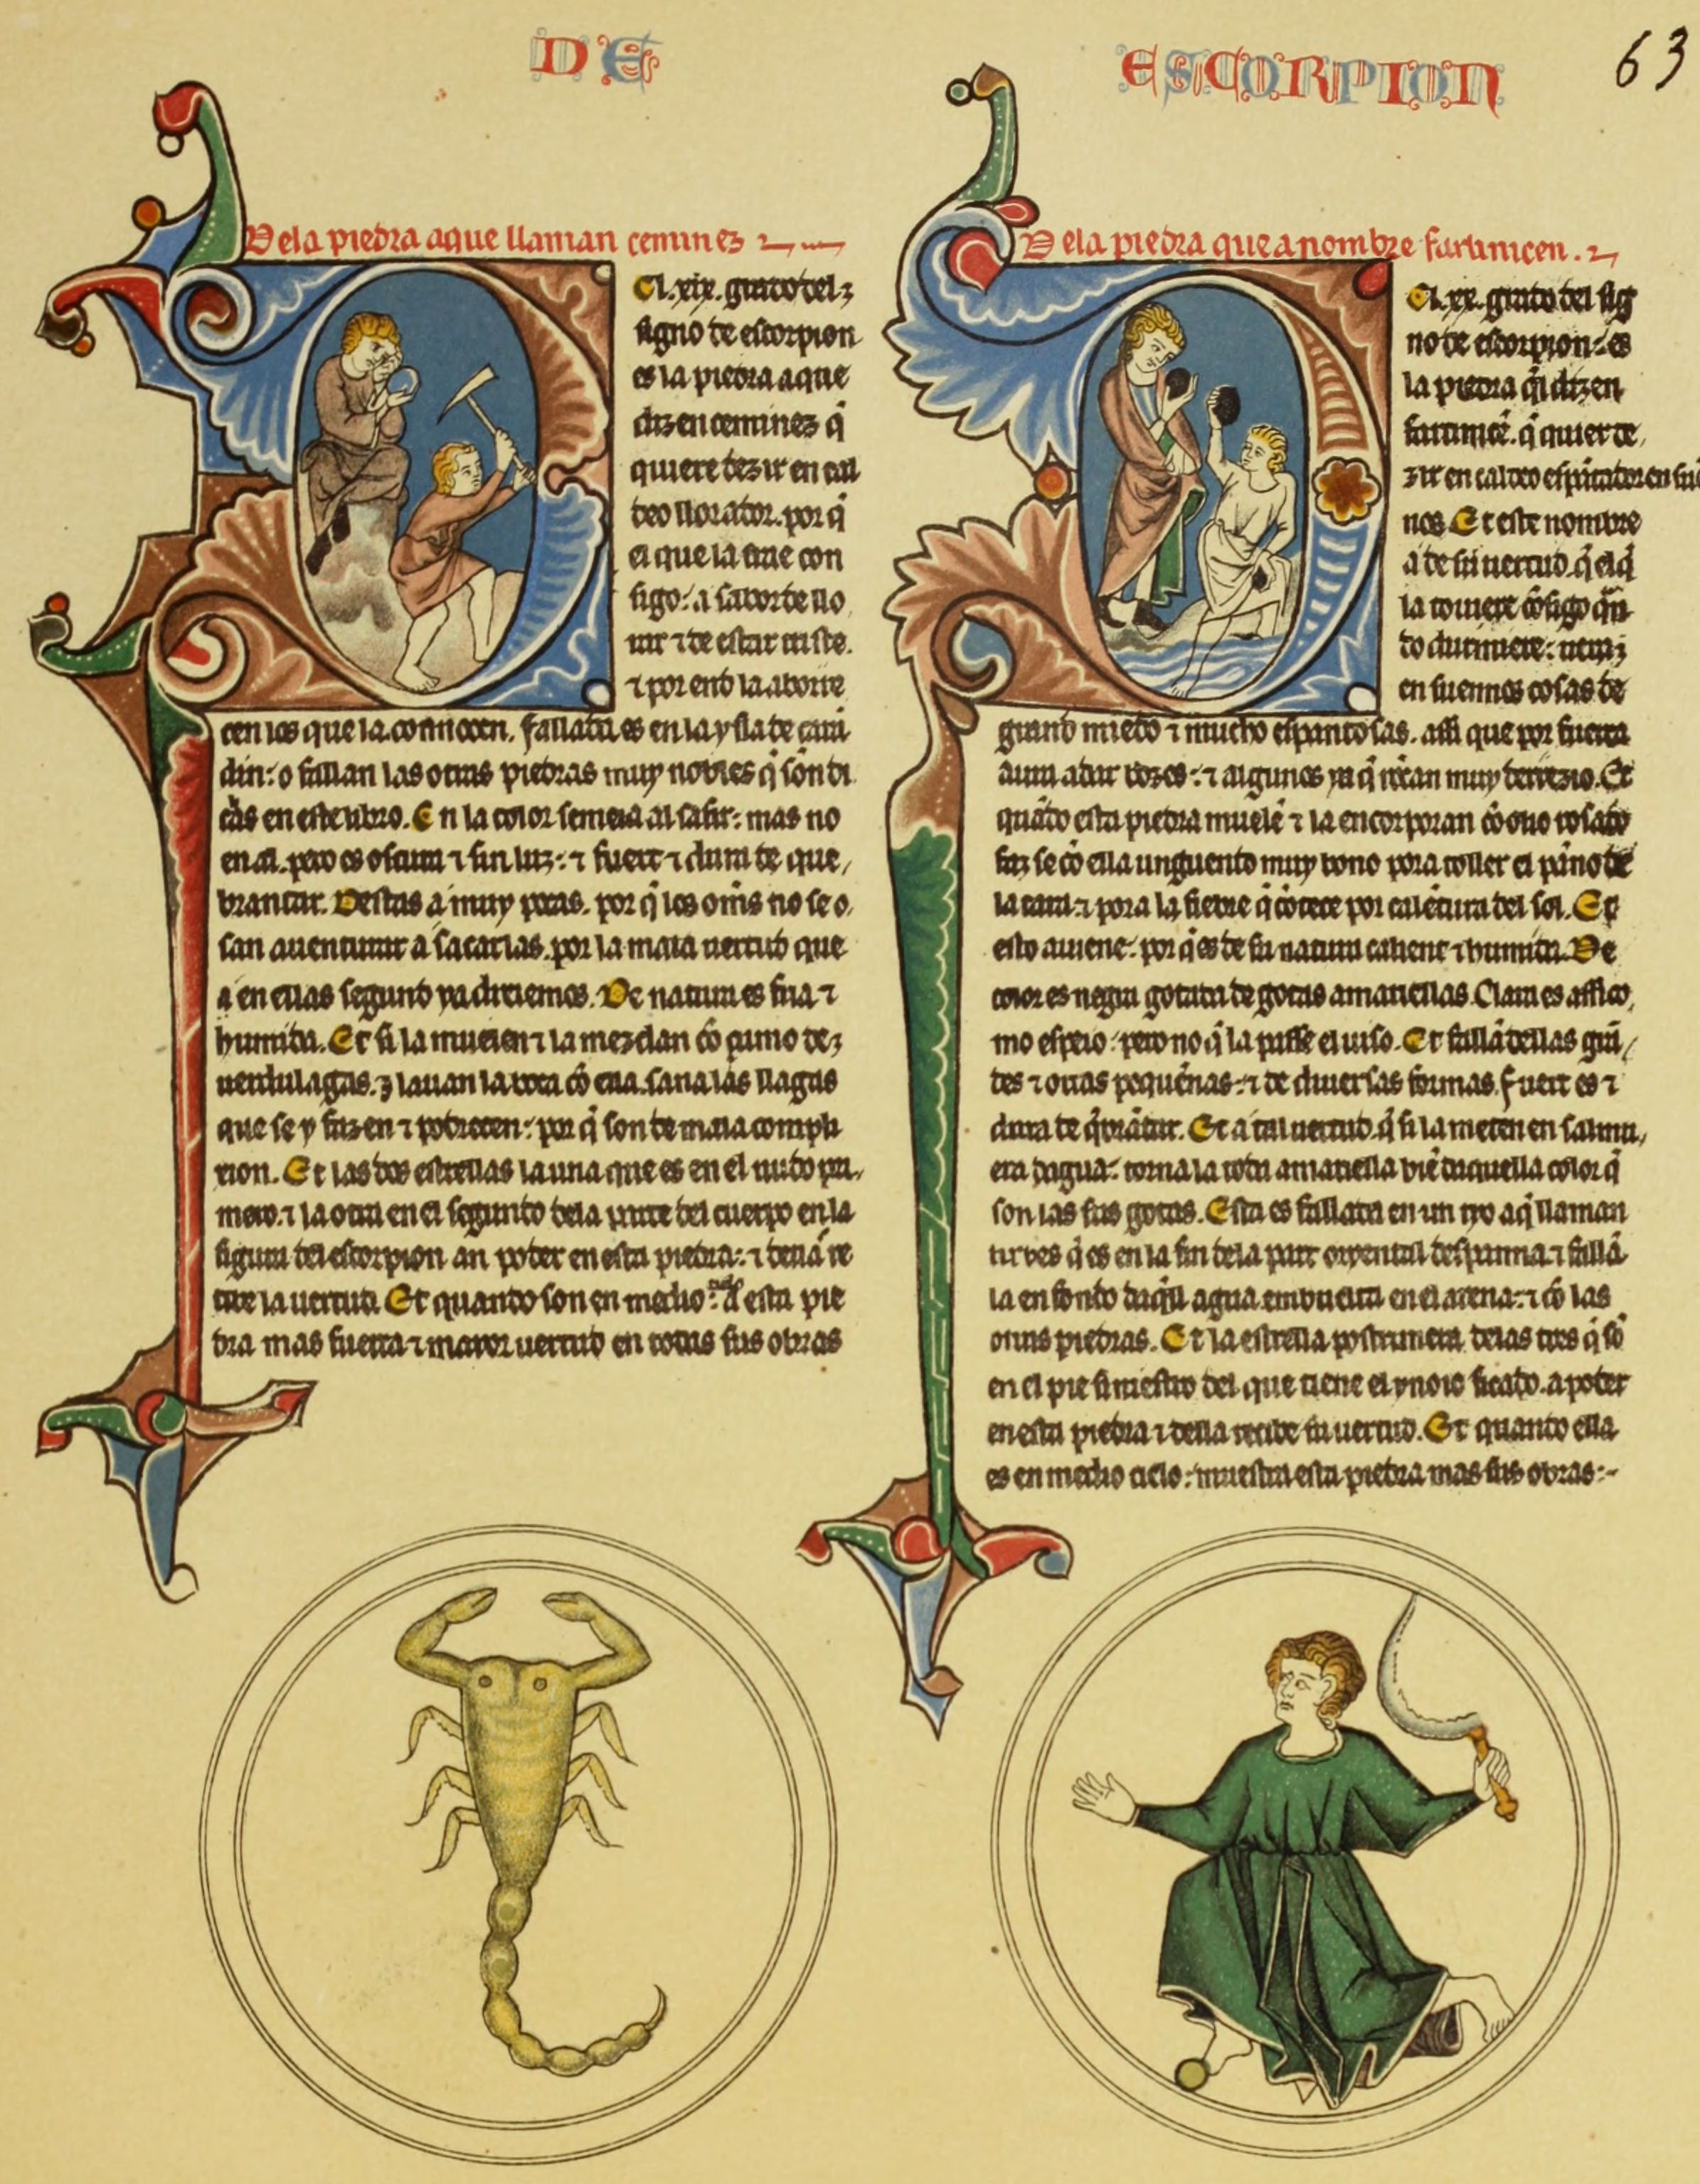 DE
ESCORPION
63
Dela piedra aque llaman ceminez
El .xix. grado del
signo de escorpion
es la piedra aque
dizen ceminez q̃
quiere dezir en cal
deo llorador. por q̃
el que la trae con
sigo: a sabor de llo
rar ⁊ de estar triste.
⁊ por end la aborre
cen los que la connocen. fallada es en la ysla de
din: o fallan las otras piedras muy nobles q̃ son di
chas en este libro. En la color semeia al safir: mas no
en al. pero es oscura ⁊ sin luz: ⁊ fuert ⁊ dura de que
brantar. Destas a muy pocas. por q̃ los om̃s no se o
san auenturar a sacarlas. por la mala uertud que
a en ellas segund ya dixiemos. De natura es fria ⁊
humida. Et si la muelen ⁊ la mezclan cõ çumo de
uerdulagas. ⁊ lauan la boca cõ ella. sana las llagas
que se y fazen ⁊ podrecen: por q̃ son de mala compli
xion. Et las dos estrellas la una que es en el nudo pri
mero. ⁊ la otra en el segundo dela parte del cuerpo en la
figura del escorpion an poder en esta piedra: ⁊ della re
cibe la uertud. Et quando son en medio cielo: a esta pie
dra mas fuerça ⁊ mayor uertud en todas sus obras
Dela piedra que a nombre furtimicen.
El .xx. grado del sig
no de escorpion: es
la piedra q̃ dizen
furtimicẽ. q̃ quier de
zir en caldeo espantador en sue
nnos. Et este nombre
a de su uertud. q̃ el q̃
la touiere cõsigo quã
do durmiere: ueera
en suennos cosas de
grand miedo ⁊ mucho espantosas. assi que por fuerça
aura a dar bozes: ⁊ algunos Et
quãdo esta piedra muelẽ ⁊ la encorporan cõ olio rosado
faz se cõ ella unguento muy bono pora toller el panno de
la cara. ⁊ pora la fiebre q̃ cõtece por calẽtura del sol. Et
esto auiene: por q̃ es de su natura caliente ⁊ humida. De
color es negra gotada de gotas amariellas. Clara es assi co
mo espeio: pero no q̃ la passe el uiso. Et fallã dellas grã
des ⁊ otras pequẽnas: ⁊ de diuersas formas. fuert es ⁊
dura de q̃brãtar. Et a tal uertud. q̃ si la meten en salmu
era dagua: torna la toda amariella biẽ daquella color q̃
son las sus gotas. Esta es fallada en un ryo aq̃ llaman
q̃ es en la fin dela part oryental despanna. ⁊ fallã
la en fondo daq̃l agua embuelta en el arena: ⁊ cõ las
otras piedras. Et la estrella postrimera delas tres q̃ sõ
en el pie siniestro del que tiene el ynoio ficado. a poder
en esta piedra ⁊ della recibe su uertud. Et quando ella
es en medio cielo: muestra esta piedra mas sus obras: